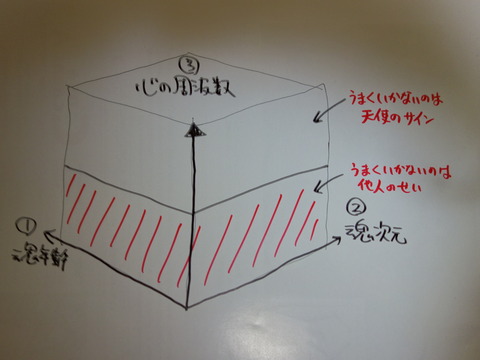 ③
心の周波数
うまくいかないのは
天使のサイン
うまくいかないのは
他人のせい
①
魂年齢
②
魂次元